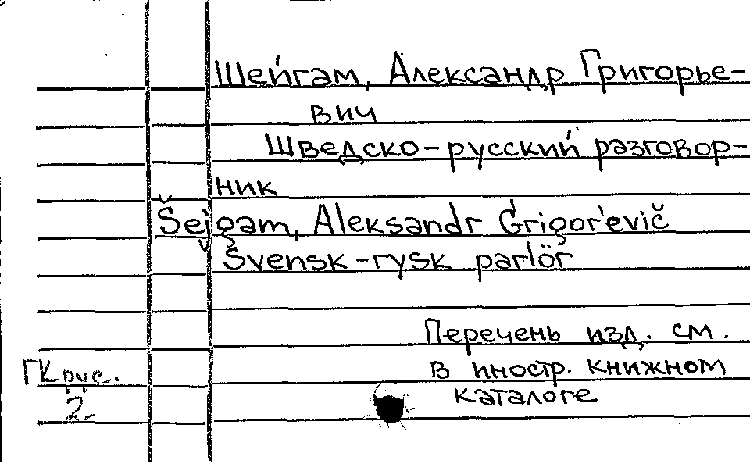 Шейгам, Александр Григорье-
вич
Шведско-русский разговор-
ник
Šejgam, Aleksandr Grigor'evič
Svensk-rysk parlör
Перечень изд. см.
ГК рус. в иностр. книжном
2 каталоге